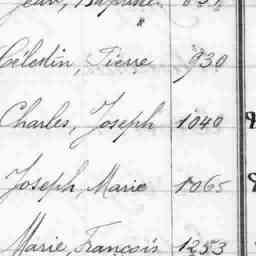 Jean, Baptiste
Célestin, Pierre 930
Charles, Joseph 1040
Joseph, Marie 1065
Marie, François 1253